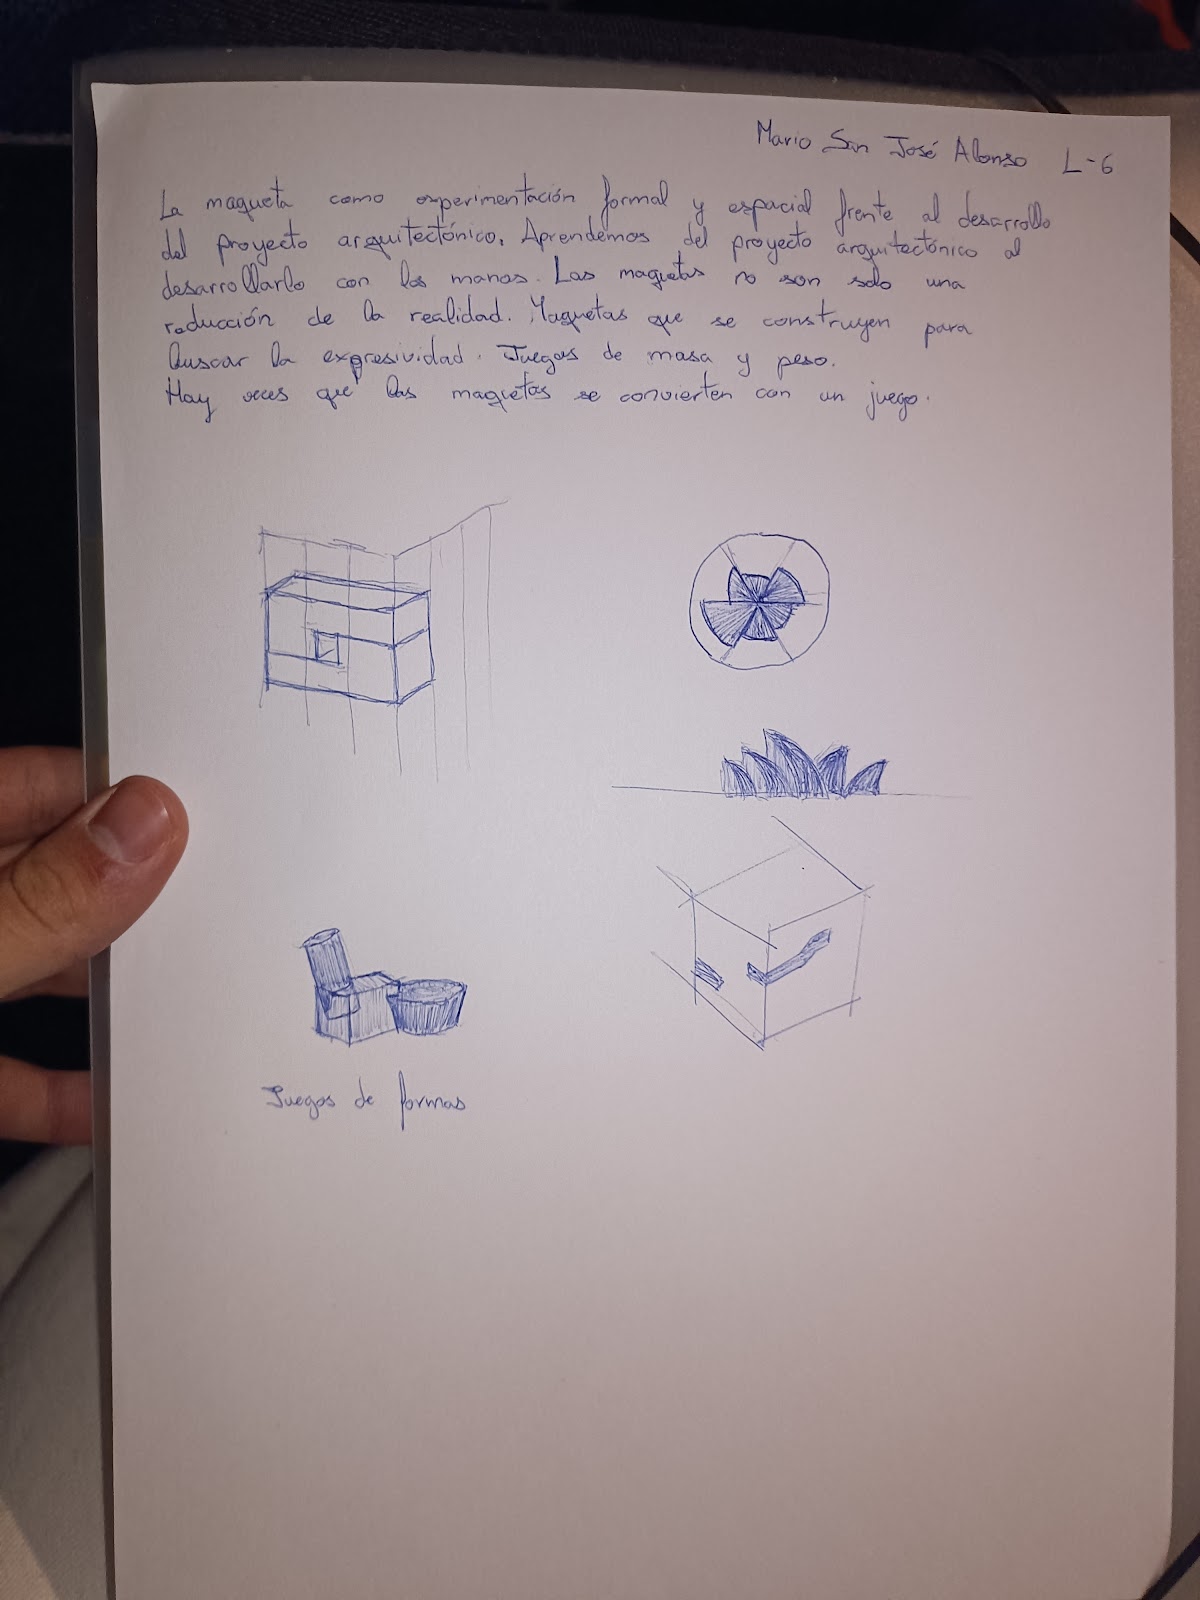 Mario San José Alonso L-6
La maqueta como experimentación formal y espacial frente al desarrollo
del proyecto arquitectónico. Aprendemos del proyecto arquitectónico al
desarrollarlo con las manos. Las maquetas no son solo una
reducción de la realidad. Maquetas que se construyen para
buscar la expresividad. Juegos de masa y peso.
Hay veces que las maquetas se convierten con un juego.
Juegos de formas